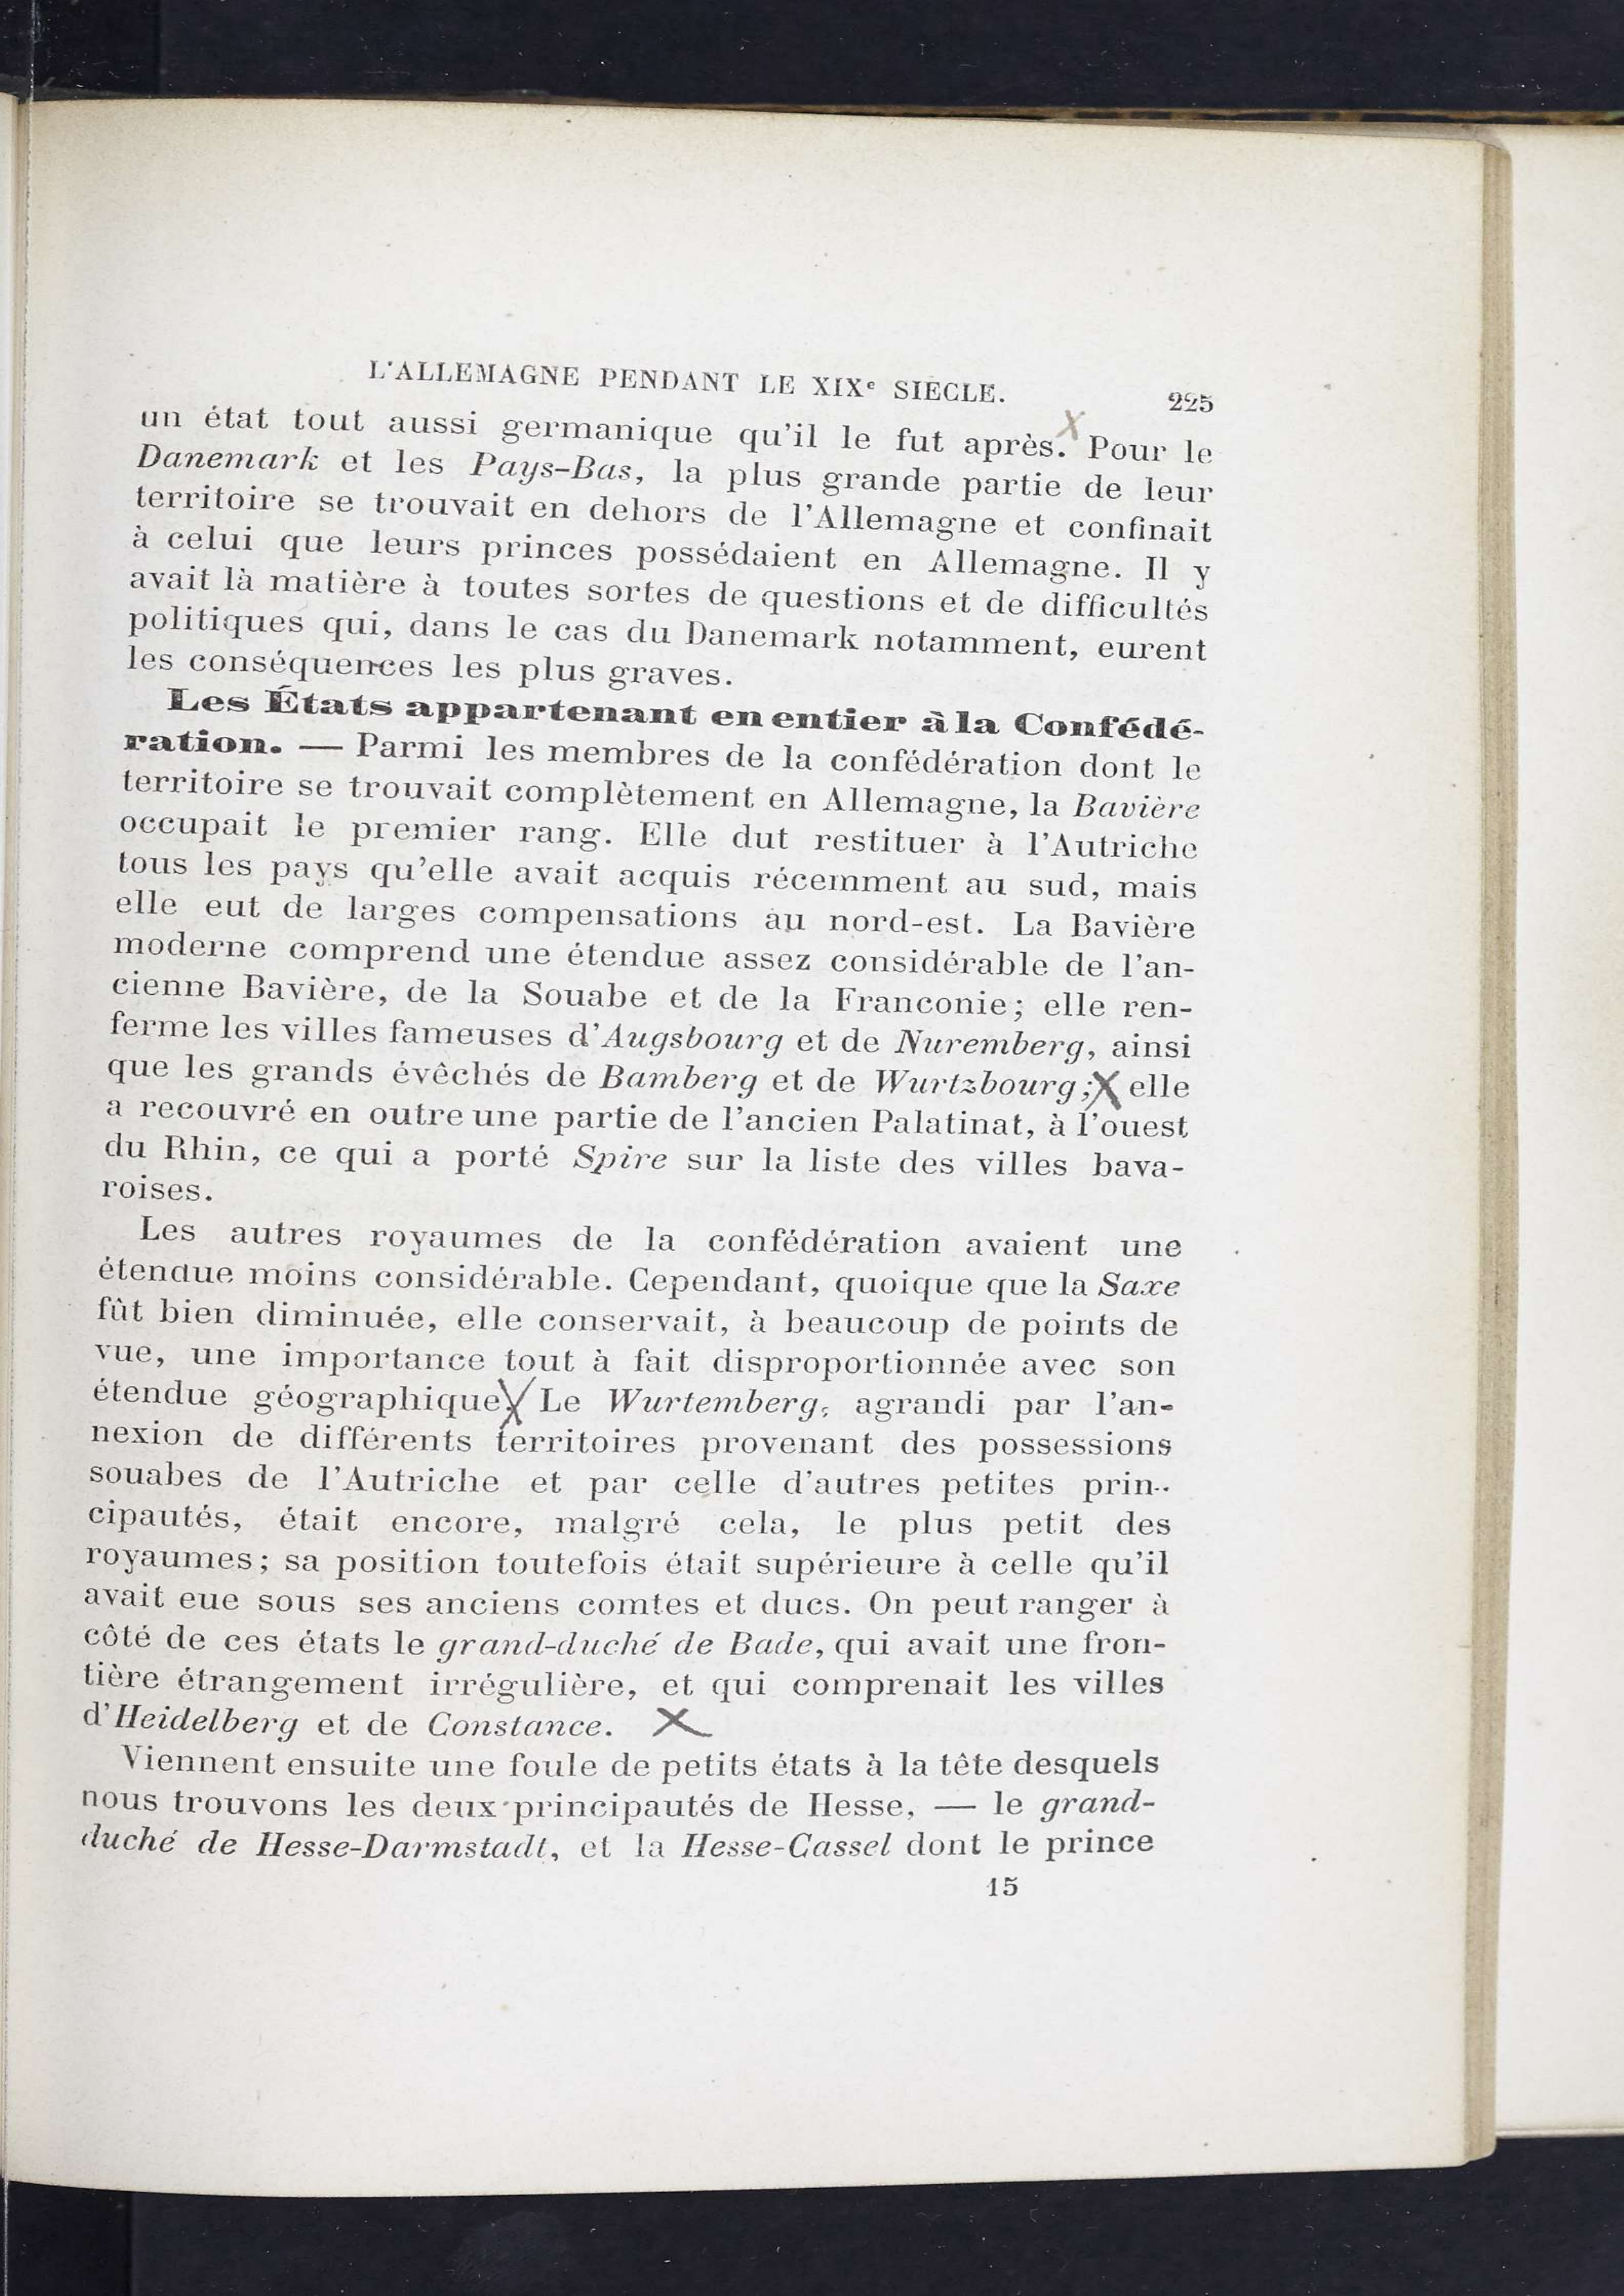 L'ALLEMAGNE PENDANT LE XIXe SIÈCLE. 225
un état tout aussi germanique qu'il le fut après. X Pour le
Danemark et les Pays-Bas, la plus grande partie de leur
territoire se trouvait en dehors de l'Allemagne et confinait
à celui que leurs princes possédaient en Allemagne. Il y
avait là matière à toutes sortes de questions et de difficultés
politiques qui, dans le cas du Danemark notamment, eurent
les conséquences les plus graves.
Les États appartenant en entier à la Confédé-
ration. — Parmi les membres de la confédération dont le
territoire se trouvait complètement en Allemagne, la Bavière
occupait le premier rang. Elle dut restituer à l'Autriche
tous les pays qu'elle avait acquis récemment au sud, mais
elle eut de larges compensations au nord-est. La Bavière
moderne comprend une étendue assez considérable de l'an-
cienne Bavière, de la Souabe et de la Franconie; elle ren-
ferme les villes fameuses d'Augsbourg et de Nuremberg, ainsi
que les grands évêchés de Bamberg et de Wurtzbourg; X elle
a recouvré en outre une partie de l'ancien Palatinat, à l'ouest
du Rhin, ce qui a porté Spire sur la liste des villes bava-
roises.
Les autres royaumes de la confédération avaient une
étendue moins considérable. Cependant, quoique que la Saxe
fût bien diminuée, elle conservait, à beaucoup de points de
vue, une importance tout à fait disproportionnée avec son
étendue géographique. X Le Wurtemberg, agrandi par l'an-
nexion de différents territoires provenant des possessions
souabes de l'Autriche et par celle d'autres petites prin-
cipautés, était encore, malgré cela, le plus petit des
royaumes; sa position toutefois était supérieure à celle qu'il
avait eue sous ses anciens comtes et ducs. On peut ranger à
côté de ces états le grand-duché de Bade, qui avait une fron-
tière étrangement irrégulière, et qui comprenait les villes
d'Heidelberg et de Constance. X
Viennent ensuite une foule de petits états à la tête desquels
nous trouvons les deux principautés de Hesse, — le grand-
duché de Hesse-Darmstadt, et la Hesse-Cassel dont le prince
15